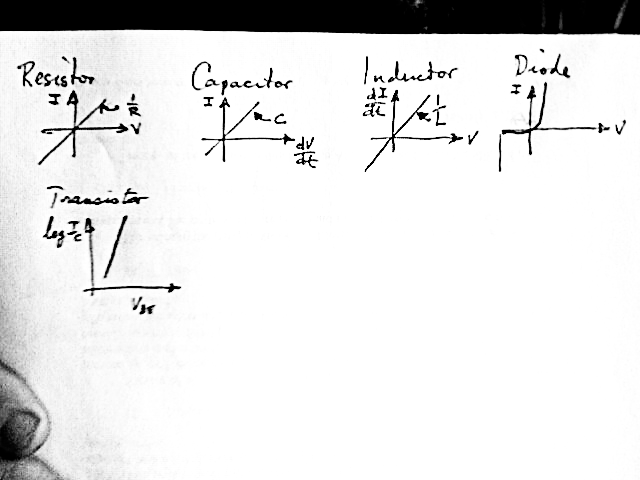 Resistor
I
1/R
V
Capacitor
I
C
dV/dt
Inductor
dI/dt
1/L
V
Diode
I
V
Transistor
log I_C
V_BE